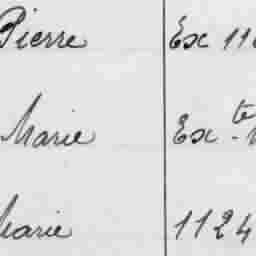 Pierre Ex 11
Marie Ex te
Marie 1124